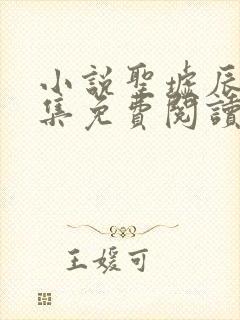 小說聖墟辰
集免費閱讀
王媛可